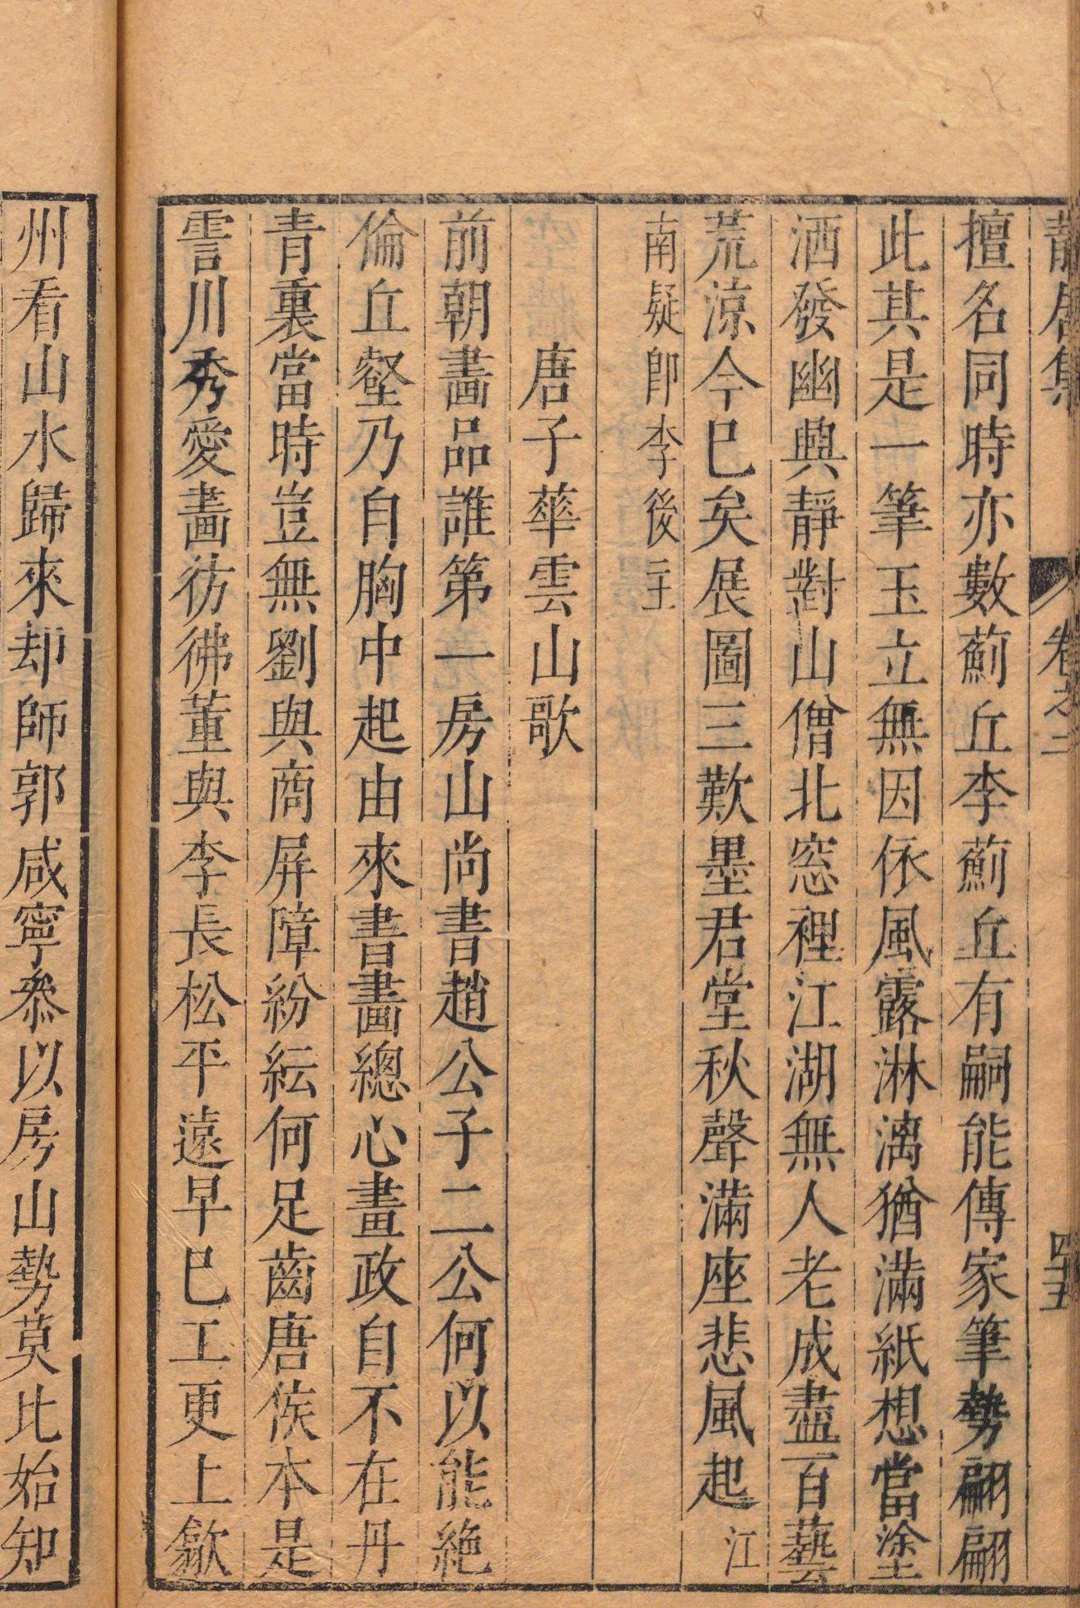 卷之二
四五
擅名同時亦數薊丘李薊丘有嗣能傳家筆勢翩翩
此其是一筆玉立無因依風露淋漓猶滿紙想當塗
洒發幽興靜對山僧北窓裡江湖無人老成盡百藝
荒涼今已矣展圖三歎墨君堂秋聲滿座悲風起江
南疑卽李後主
唐子華雲山歌
前朝畵品誰第一房山尚書趙公子二公何以能絶
倫丘壑乃自胸中起由來書畵總心畫政自不在丹
青裏當時豈無劉與商屏障紛紜何足齒唐侯本是
霅川秀愛畵彷彿董與李長松平遠早已工更上歙
州看山水歸來却師郭咸寧叅以房山勢莫比始知